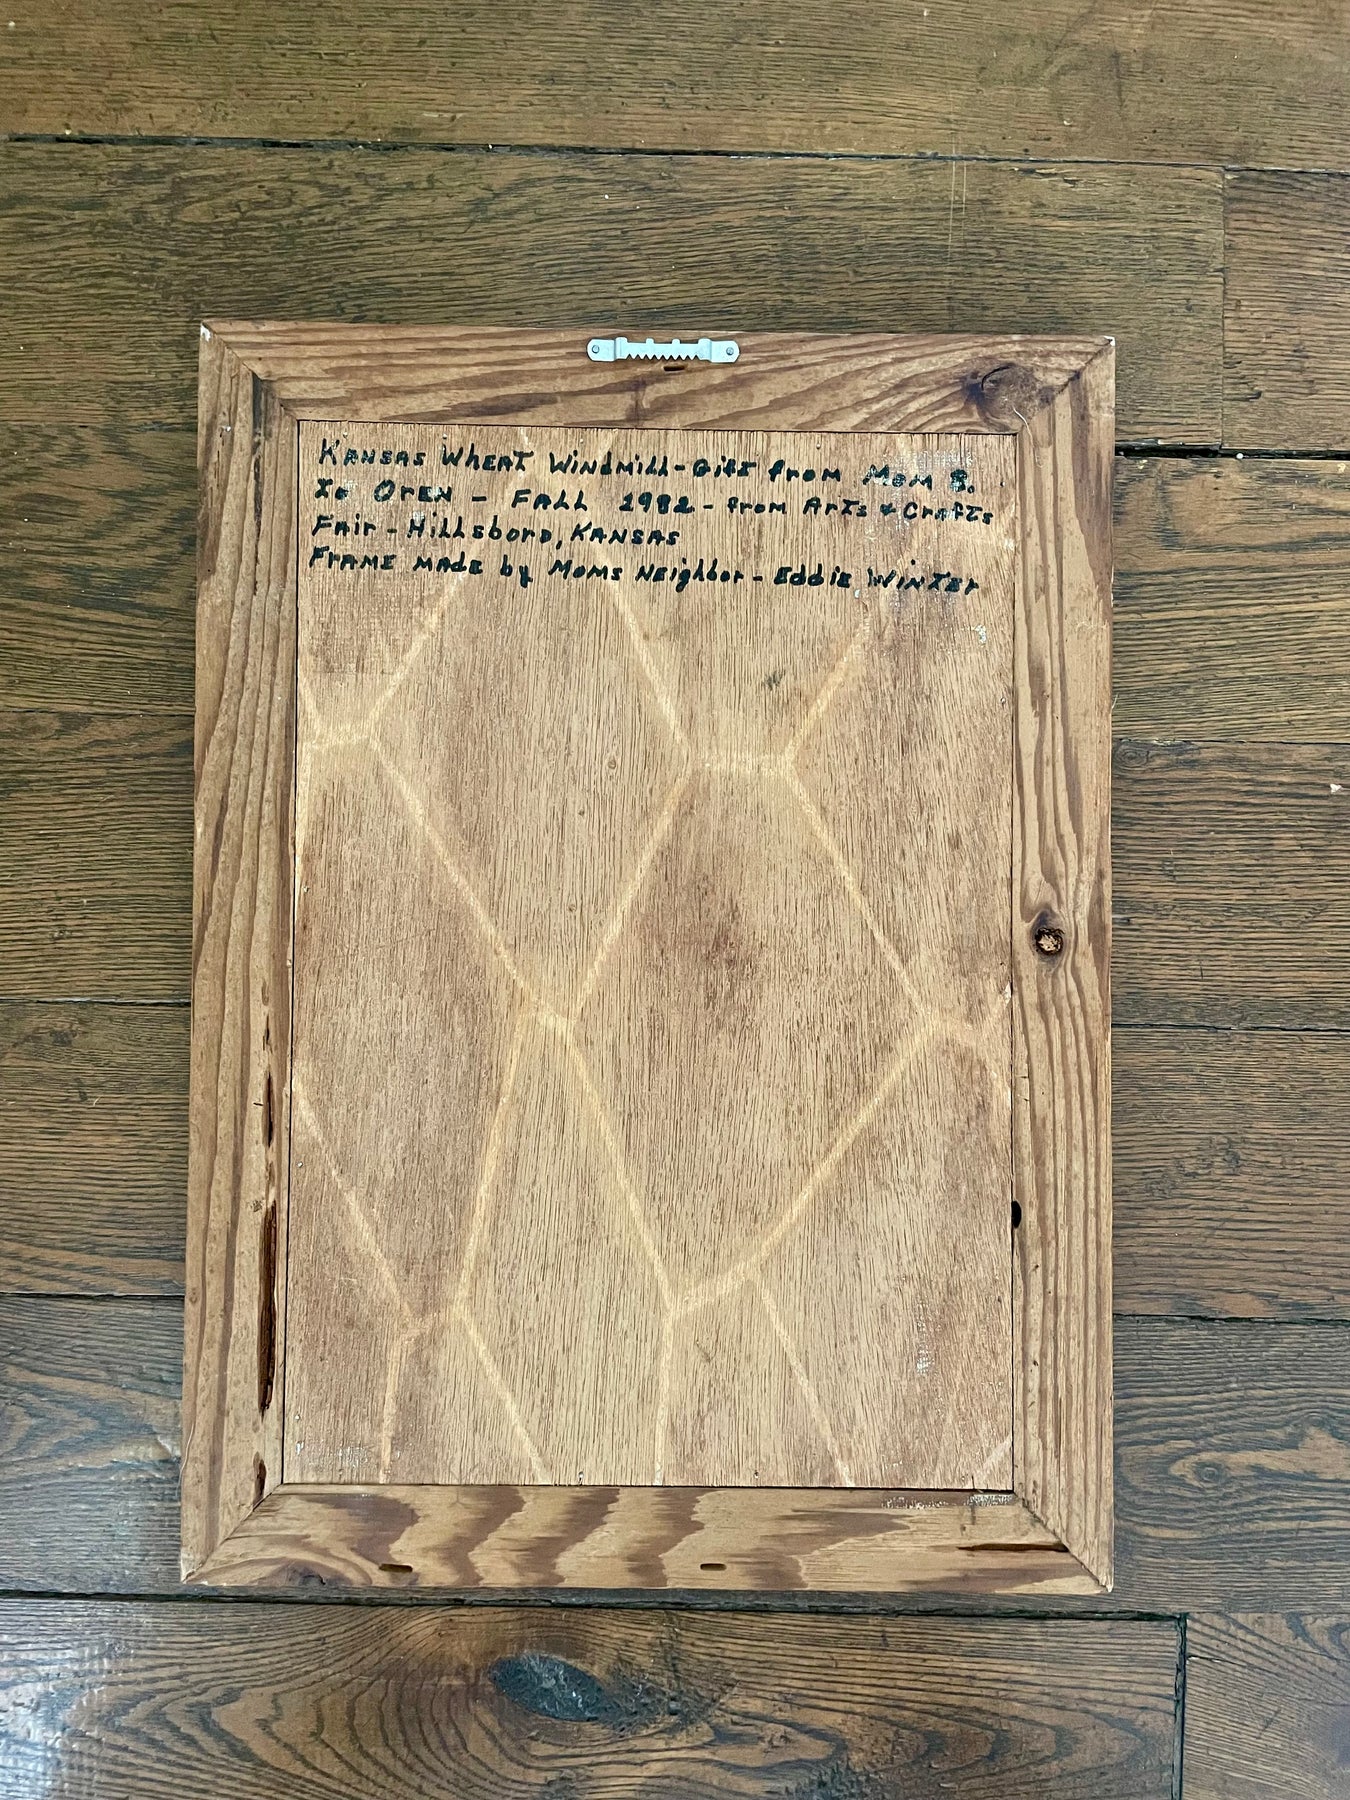 Kansas Wheat Windmill - Gift from Mom B.
To Oren - Fall 1982 - from Arts & Crafts
Fair - Hillsboro, Kansas
Frame made by Moms Neighbor - Eddie Winter